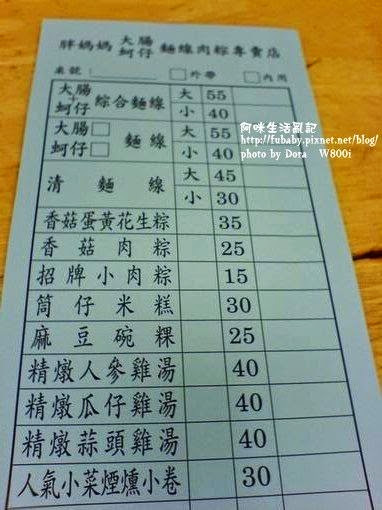 胖媽媽 大腸 蚵仔 麵線肉粽專賣店
桌號： □外帶 □內用
大腸+蚵仔 綜合麵線 大 55
小 40
大腸□ 蚵仔□ 麵線 大 55
小 40
清麵線 大 45
小 30
香菇蛋黃花生粽 35
香菇肉粽 25
招牌小肉粽 15
筒仔米糕 30
麻豆碗粿 25
精燉人參雞湯 40
精燉瓜仔雞湯 40
精燉蒜頭雞湯 40
人氣小菜煙燻小卷 30
阿咪生活亂記
http://fubaby.pixnet.net/blog/
photo by Dora W800i